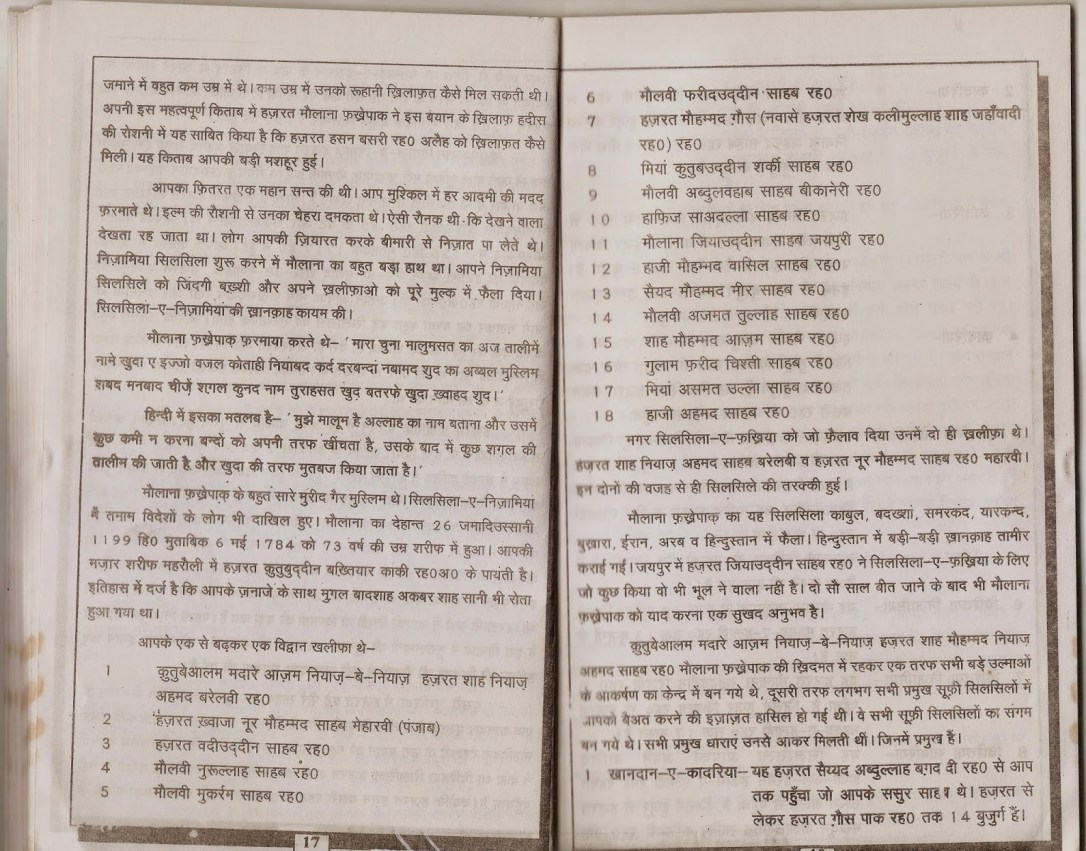 जमाने में बहुत कम उम्र में थे। कम उम्र में उनको रूहानी ख़िलाफ़त कैसे मिल सकती थी।
अपनी इस महत्वपूर्ण किताब में हज़रत मौलाना फ़ख़्रेपाक ने इस बयान के ख़िलाफ़ हदीस
की रोशनी में यह साबित किया है कि हज़रत हसन बसरी रह0 अलैह को ख़िलाफ़त कैसे
मिली। यह किताब आपकी बड़ी मशहूर हुई।
आपका फ़ितरत एक महान सन्त की थी। आप मुश्किल में हर आदमी की मदद
फ़रमाते थे। इल्म की रौशनी से उनका चेहरा दमकता थे। ऐसी रौनक थी कि देखने वाला
देखता रह जाता था। लोग आपकी ज़ियारत करके बीमारी से निज़ात पा लेते थे।
निज़ामिया सिलसिला शुरू करने में मौलाना का बहुत बड़ा हाथ था। आपने निज़ामिया
सिलसिले को जिंदगी बख़्शी और अपने ख़लीफ़ाओ को पूरे मुल्क में फैला दिया।
सिलसिला-ए-निज़ामियां की ख़ानक़ाह कायम की।
मौलाना फ़ख़्रेपाक़ फ़रमाया करते थे- 'मारा चुना मालुमसत का अज तालीमें
नामे खुदा ए इज्जो वजल कोताही नियाबद कर्द दरबन्दां नबामद शुद का अव्वल मुस्लिम
शबद मनबाद चीज़ें शग़ल कुनद नाम तुराहसत खुद बतरफे खुदा ख़्वाहद शुद।'
हिन्दी में इसका मतलब है- 'मुझे मालूम है अल्लाह का नाम बताना और उसमें
कुछ कमी न करना बन्दों को अपनी तरफ खींचता है, उसके बाद में कुछ शगल की
तालीम की जाती है और खुदा की तरफ मुतबज किया जाता है।'
मौलाना फ़ख़्रेपाक़ के बहुत सारे मुरीद गैर मुस्लिम थे। सिलसिला-ए-निज़ामियां
में तमाम विदेशों के लोग भी दाखिल हुए। मौलाना का देहान्त 26 जमादिउस्सानी
1199 हि0 मुताबिक 6 मई 1784 को 73 वर्ष की उम्र शरीफ में हुआ। आपकी
मज़ार शरीफ महरौली में हज़रत क़ुतुबुद्दीन बख़्तियार काकी रह0अ0 के पायंती है।
इतिहास में दर्ज है कि आपके ज़नाजे के साथ मुगल बादशाह अकबर शाह सानी भी रोता
हुआ गया था।
आपके एक से बढ़कर एक विद्वान खलीफा थे-
1 क़ुतुबेआलम मदारे आज़म नियाज़-बे-नियाज़ हज़रत शाह नियाज़
अहमद बरेलवी रह0
2 हज़रत ख़्वाजा नूर मौहम्मद साहब मेहारवी (पंजाब)
3 हज़रत वदीउद्दीन साहब रह0
4 मौलवी नुरूल्लाह साबह रह0
5 मौलवी मुकर्रम साहब रह0
17
6 मौलवी फरीदउद्दीन साहब रह0
7 हज़रत मौहम्मद ग़ौस (नवासे हज़रत शेख कलीमुल्लाह शाह जहाँवादी
रह0) रह0
8 मियां क़ुतुबउद्दीन शर्की साहब रह0
9 मौलवी अब्दुलवहाब साहब बीकानेरी रह0
10 हाफ़िज साअदल्ला साहब रह0
11 मौलाना जियाउद्दीन साहब जयपुरी रह0
12 हाजी मौहम्मद वासिल साहब रह0
13 सैयद मौहम्मद मीर साहब रह0
14 मौलवी अजमत तुल्लाह साहब रह0
15 शाह मौहम्मद आज़म साहब रह0
16 गुलाम फ़रीद चिश्ती साहब रह0
17 मियां असमत उल्ला साहब रह0
18 हाजी अहमद साहब रह0
मगर सिलसिला-ए-फ़ख्रिया को जो फ़ैलाव दिया उनमें दो ही ख़लीफ़ा थे।
हज़रत शाह नियाज़ अहमद साहब बरेलबी व हज़रत नूर मौहम्मद साहब रह0 महारवी।
इन दोनों की वजह से ही सिलसिले की तरक्की हुई।
मौलाना फ़ख़्रेपाक़ का यह सिलसिला काबुल, बदख्शां, समरकंद, यारकन्द,
बुख़ारा, ईरान, अरब व हिन्दुस्तान में फैला। हिन्दुस्तान में बड़ी-बड़ी ख़ानक़ाह तामीर
कराई गईं। जयपुर में हज़रत जियाउद्दीन साहब रह0 ने सिलसिला-ए-फ़ख्रिया के लिए
जो कुछ किया वो भी भूल ने वाला नही है। दो सौ साल बीत जाने के बाद भी मौलाना
फ़ख़्रेपाक को याद करना एक सुखद अनुभव है।
क़ुतुबेआलम मदारे आज़म नियाज़-बे-नियाज़ हज़रत शाह मौहम्मद नियाज़
अहमद साहब रह0 मौलाना फ़ख़्रेपाक की ख़िदमत में रहकर एक तरफ सभी बड़े उल्माओं
के आकर्षण का केन्द्र में बन गये थे, दूसरी तरफ लगभग सभी प्रमुख सूफ़ी सिलसिलों में
आपको बैअत करने की इज़ाज़त हासिल हो गई थी। वे सभी सूफ़ी सिलसिलों का संगम
बन गये थे। सभी प्रमुख धाराएं उनसे आकर मिलती थीं। जिनमें प्रमुख हैं।
1 खानदान-ए-कादरिया- यह हज़रत सैय्यद अब्दुल्लाह बग़द दी रह0 से आप
तक पहुँचा जो आपके ससुर साहब थे। हज़रत से
लेकर हज़रत ग़ौस पाक रह0 तक 14 बुजुर्ग हैं।